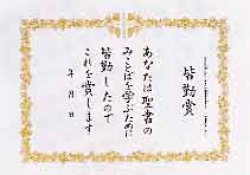 皆勤賞
あなたは聖書の
みことばを学ぶために
皆勤したので
これを賞します
年　月　日